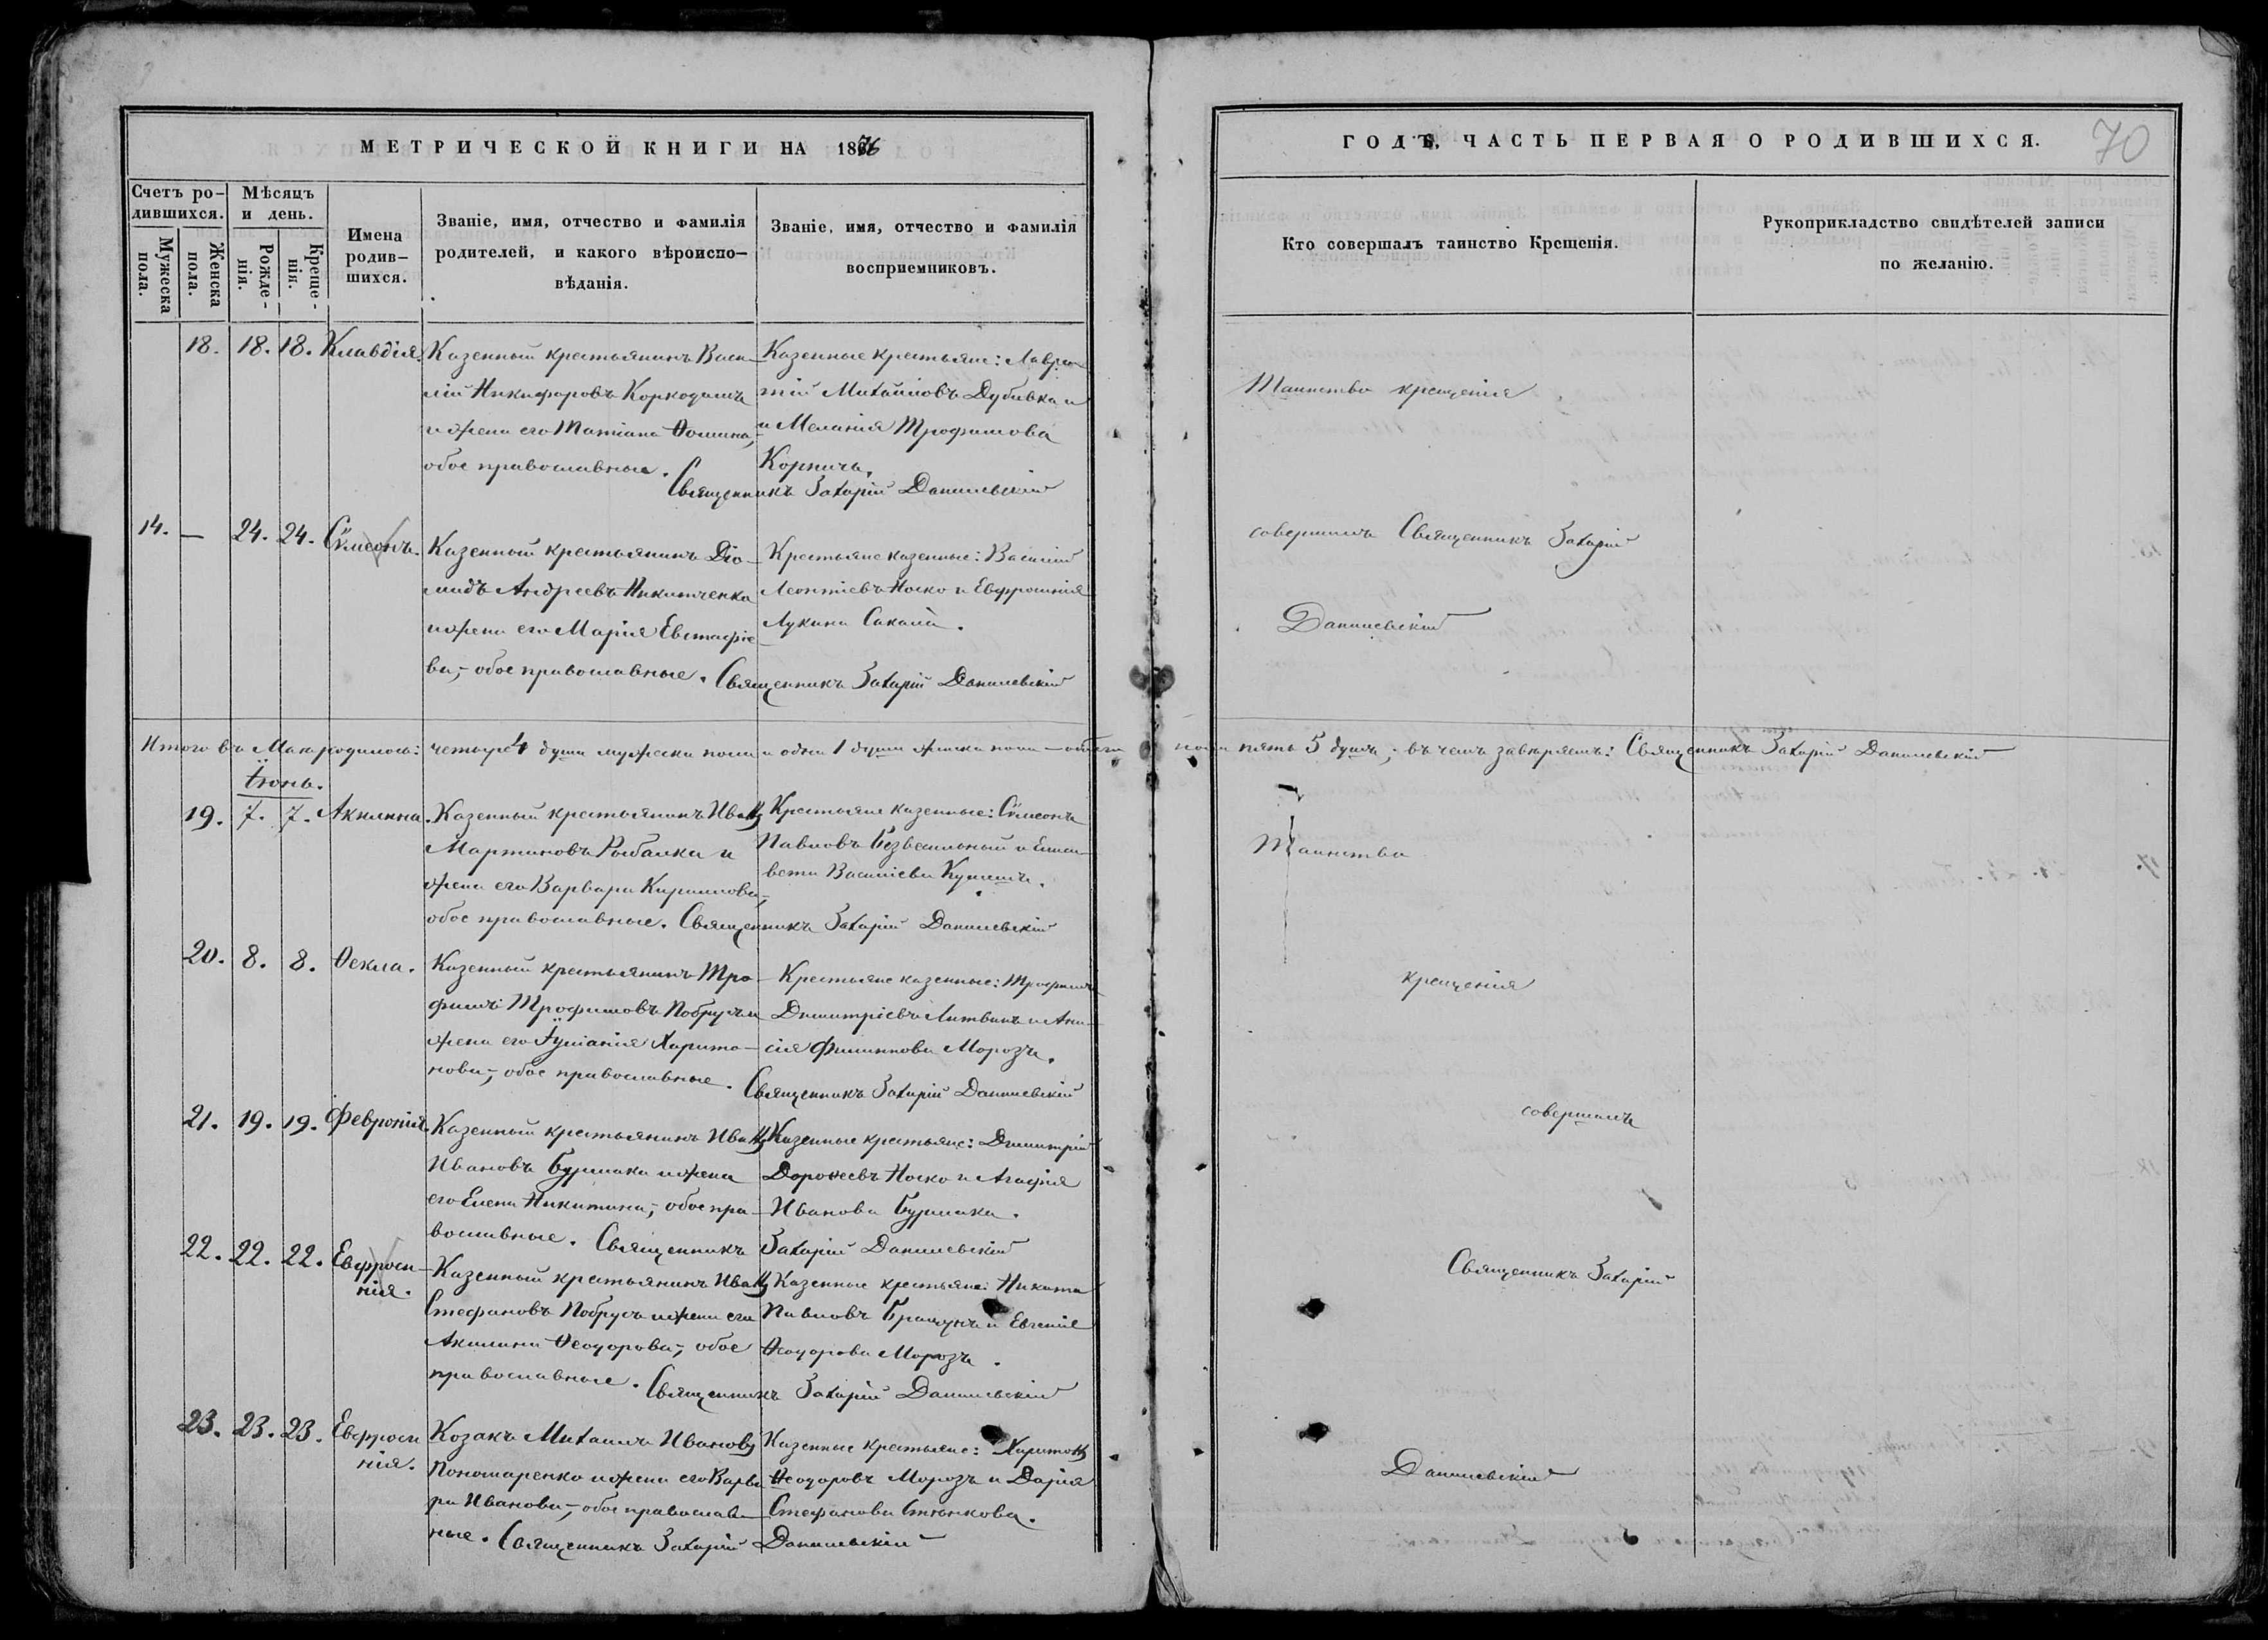 МЕТРИЧЕСКОЙ КНИГИ НА 1866
Счетъ ро-
дившихся.
Мужеска
пола.
Женска
пола.
Мѣсяцъ
и день.
Рожде-
нія.
Креще-
нія.
Имена
родив-
шихся.
Званіе, имя, отчество и фамилія
родителей, и какого вѣроиспо-
вѣданія.
Званіе, имя, отчество и фамилія
восприемниковъ.
18. 18. 18. Клавдія.
Казенный крестьянинъ Васи-
лій Никифоровъ
и жена его Татіана Ѳомина,-
обое православные.
Казенные крестьяне: Лаврен-
тій Михайловъ Дубивка и
и Меланія Трофимова
Корпичъ.
Священникъ Захарій Данилевскій
14. — 24. 24. Сѵмеонъ.
Казенный крестьянинъ Діо-
мидъ Андреевъ Никитченко
и жена его Марія Евстафіе-
ва,- обое православные.
Крестьяне казенные: Василій
Леонтіевъ Носко и Евфросинія
Лукина Сакалъ.
Священникъ Захарій Данилевскій
Итого въ Маи родилось: четыре 4 души мужеска пола и одна 1 душа женска пола — обоего
Іюнь.
19. 7. 7. Акилина.
Казенный крестьянинъ Иванъ
Мартиновъ Рыбалка и
жена его Варвара Кириллова,-
обое православные.
Крестьяне казенные: Сѵмеонъ
Павловъ Безвесильный и Елиса-
вета Василіева
Священникъ Захарій Данилевскій
20. 8. 8. Ѳекла.
Казенный крестьянинъ Тро-
фимъ Трофимовъ Побрусъ и
жена его Іуліанія Харито-
нова,- обое православные.
Крестьяне казенные: Трофимъ
Димитріевъ Литвинъ и Ани-
сія Филиппова Морозъ.
Священникъ Захарій Данилевскій
21. 19. 19. Февронія.
Казенный крестьянинъ Иванъ
Ивановъ Бурлака и жена
его Елена Никитина,- обое пра-
вославные.
Казенные крестьяне: Димитрій
Дороѳеевъ Носко и Агафія
Иванова Бурлака.
Священникъ Захарій Данилевскій
22. 22. 22. Евфроси-
нія.
Казенный крестьянинъ Иванъ
Стефановъ Побрусъ и жена его
Акилина Ѳеодорова,- обое
православные.
Казенные крестьяне: Никита
Павловъ и Евгенія
Ѳеодорова Морозъ.
Священникъ Захарій Данилевскій
23. 23. 23. Евфроси
нія.
Козакъ Михаилъ Ивановъ
Пономаренко и жена его Варва
ра Иванова,- обое православ-
ные.
Казенные крестьяне: Харитонъ
Ѳеодоровъ Морозъ и Дарія
Стефанова
Священникъ Захарій Данилевскій
ГОДЪ, ЧАСТЬ ПЕРВАЯ О РОДИВШИХСЯ.
70
Кто совершалъ таинство Крещенія.
Рукоприкладство свидѣтелей записи
по желанію.
Таинство крещенія
совершилъ Священникъ Захарій
Данилевскій
пола пять 5 душъ; въ чемъ завѣряемъ: Священникъ Захарій Данилевскій
Таинство
крещенія
совершилъ
Священникъ Захарій
Данилевскій